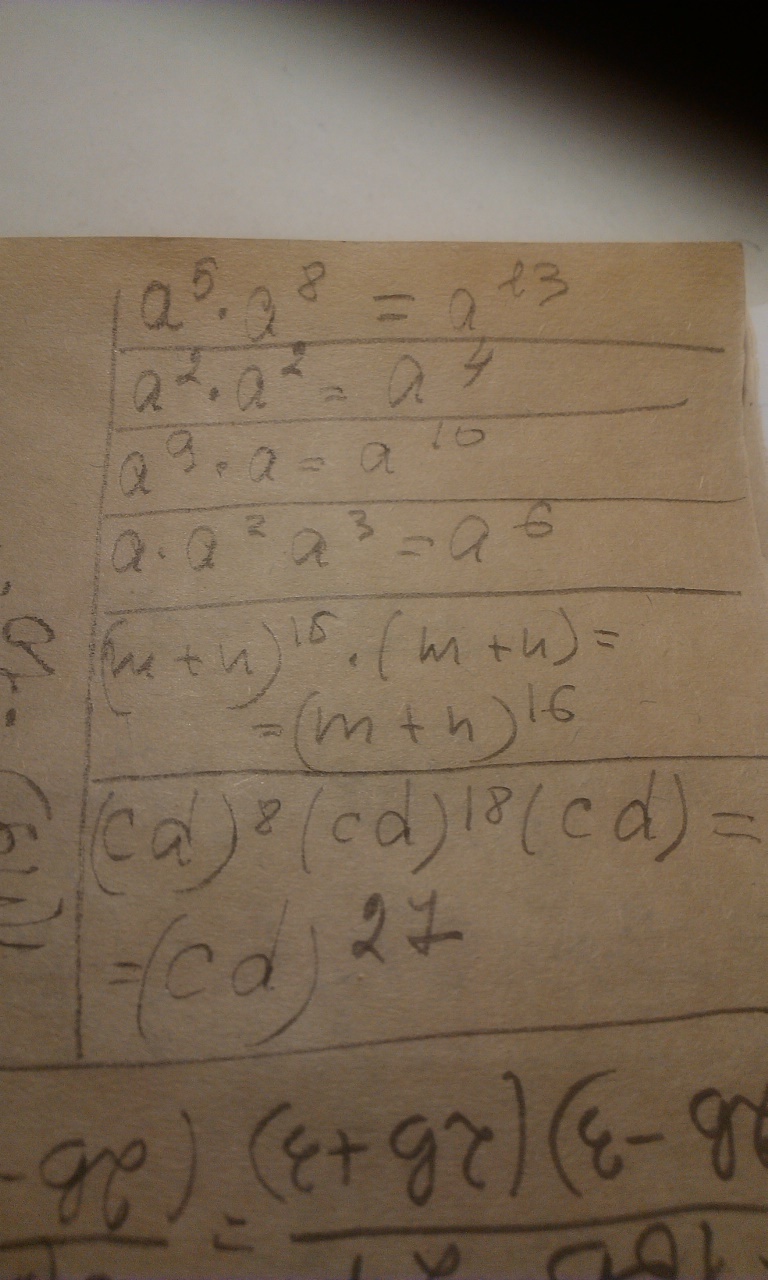 a⁵·a⁸ = a¹³
a²·a² = a⁴
a⁹·a = a¹⁰
a·a² a³ = a⁶
(m+n)¹⁵·(m+n)=
=(m+n)¹⁶
(cd)⁸(cd)¹⁸(cd)=
=(cd)²⁷